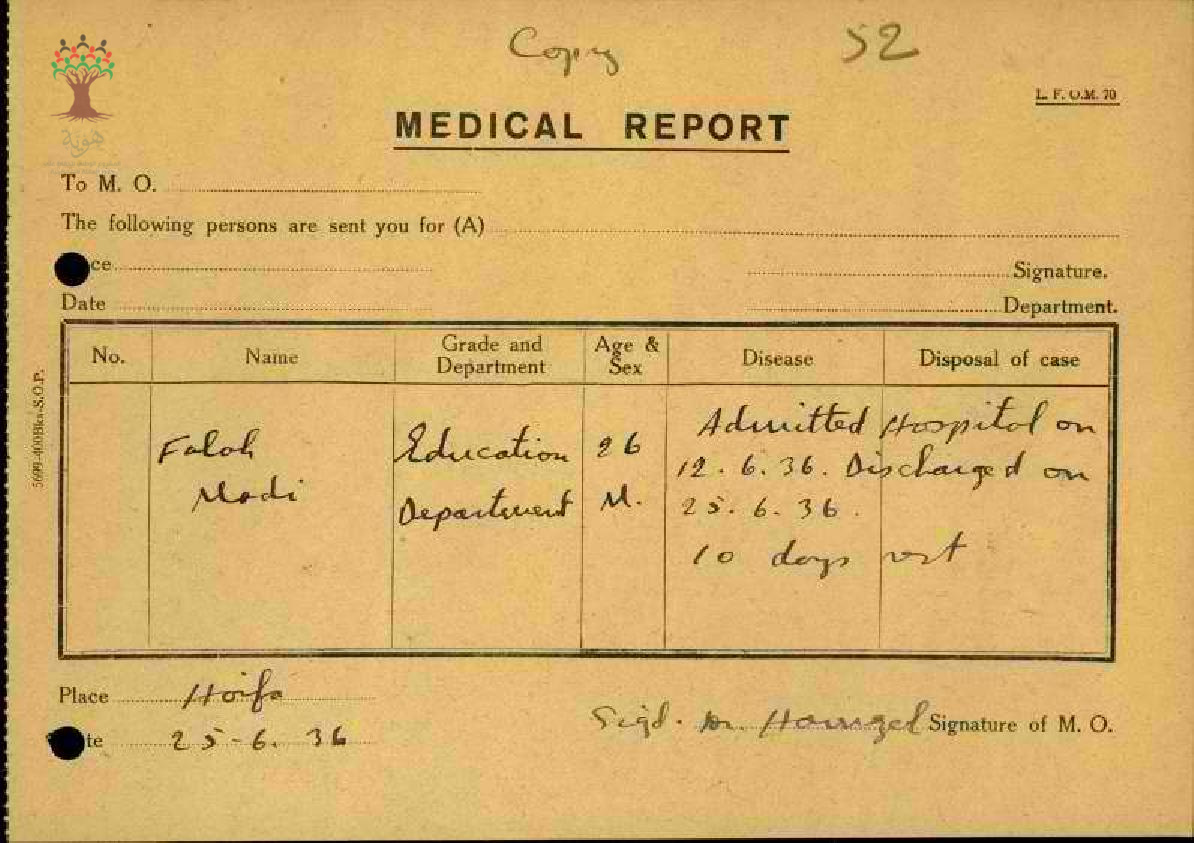 Copy 52
L. F. O.M. 70
MEDICAL REPORT
هوية
To M. O.
The following persons are sent you for (A)
ce Signature.
Date Department.
No. Name Grade and Department Age & Sex Disease Disposal of case
Falah Education 26 Admitted Hospital on
Madi Department M. 12. 6. 36. Discharged on
25. 6. 36.
10 days rest
5699-400Bks-S.O.P.
Place Haifa
Sigd. Dr. Signature of M. O.
te 25-6. 36